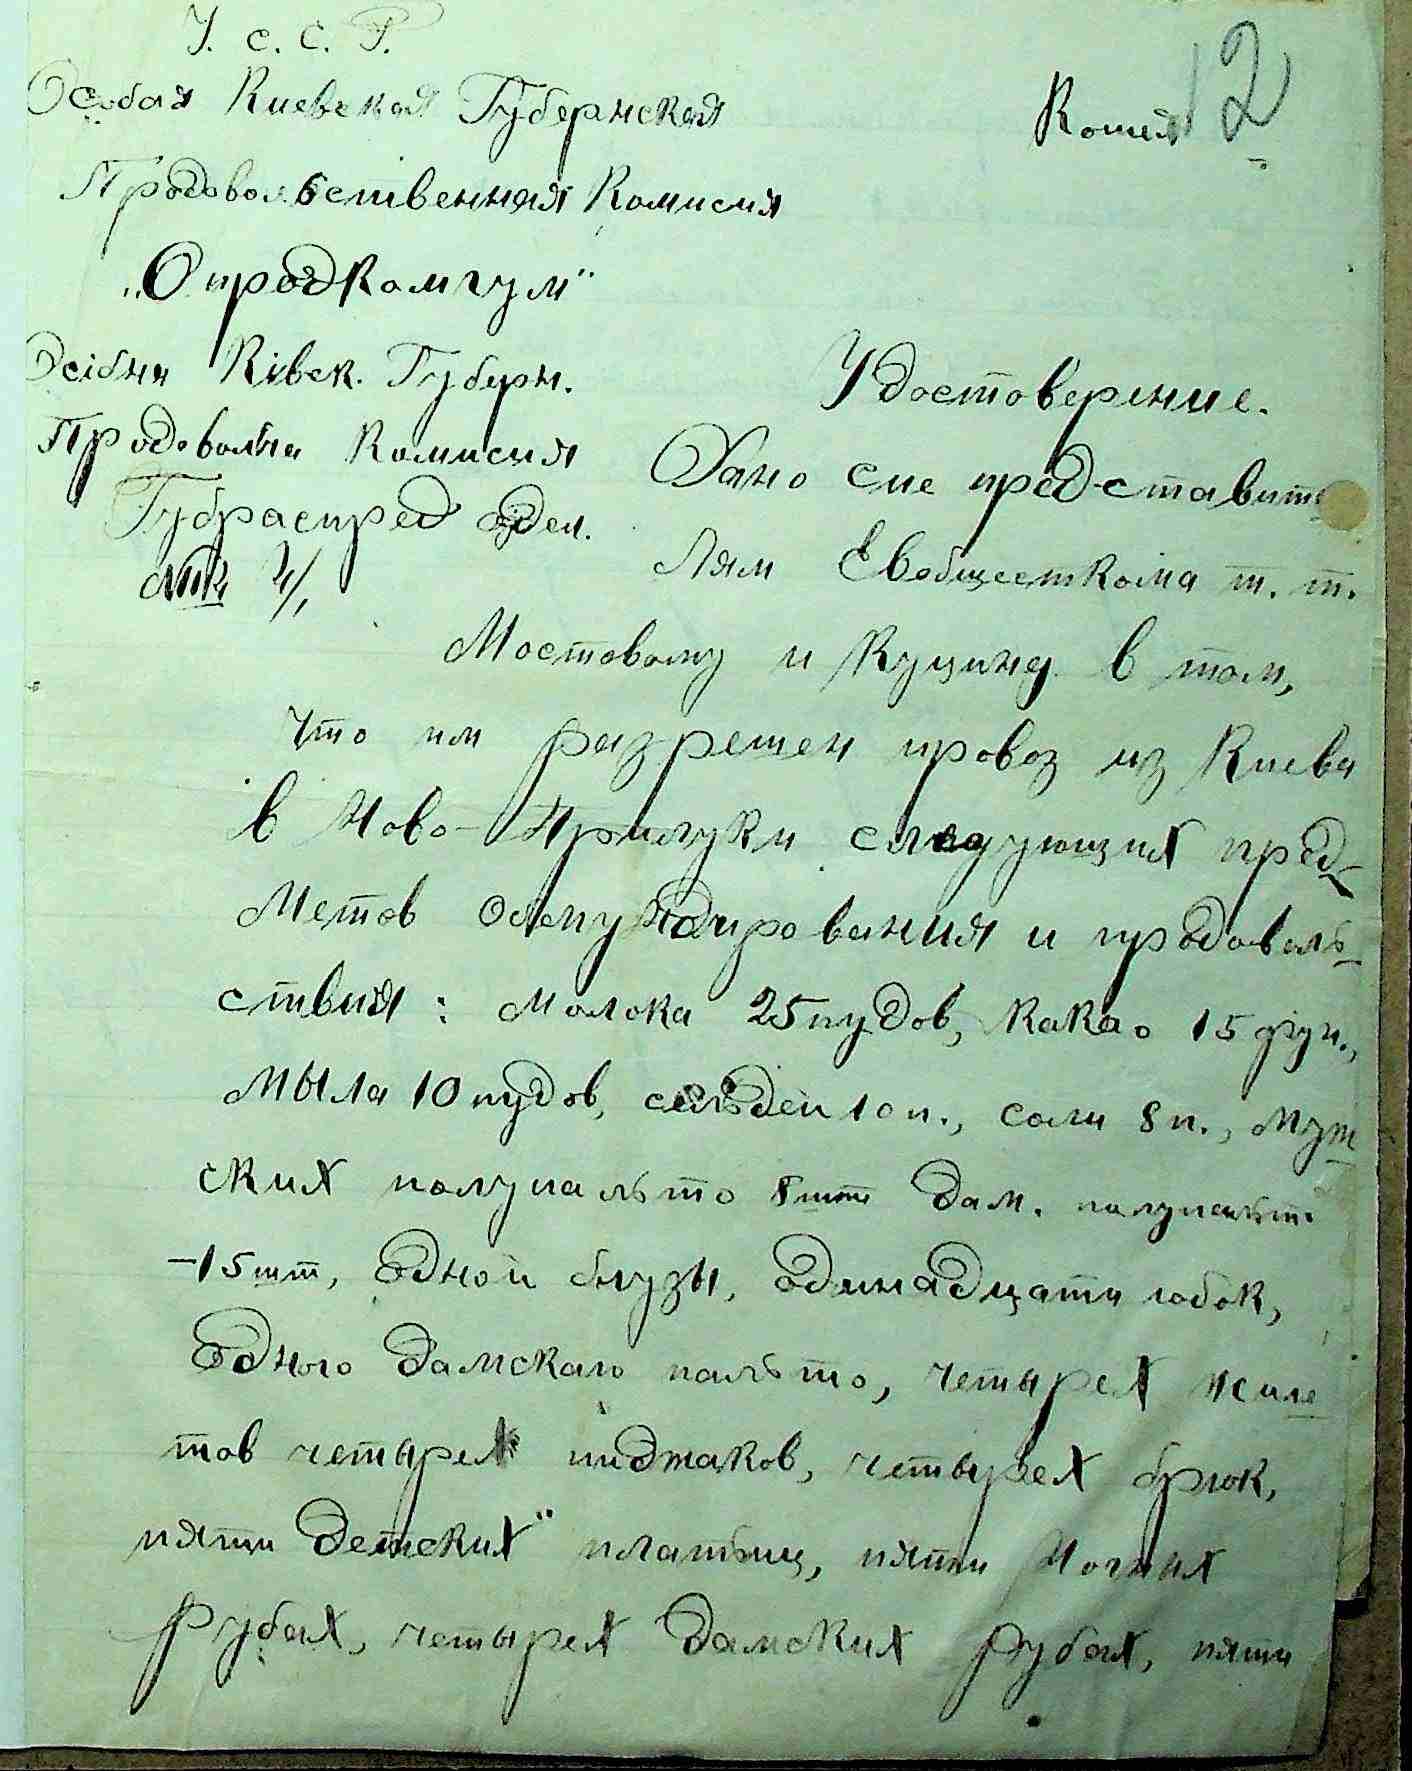 У. С. С. Р.
12
Особая Киевская Губернская
Копия
Продовольственная Комисия
„Опродкомгум"
Осібня Ківск. Губерн.
Удостоверение.
Продовольча Комисия
Дано сие представите
Губраспред отдел.
лям Евобщесткома т. т.
Мостовому и Куцину в том,
что им разрешен провоз из Киева
в Ново-Прилуки следующих пред-
метов обмундирования и продоволь-
ствия: молока 25 пудов, какао 15 фун.,
мыла 10 пудов, сельдей 10 п., соли 8 п., муж
ских полупальто 8 шт дам. полупальто
-15 шт, одной блузы, одинадцати юбок,
одного дамскаго пальто, четырех жиле
тов четырех пиджаков, четырех брюк,
пяти детских платьиц, пяти ночных
рубах, четырех дамских рубах, пяти